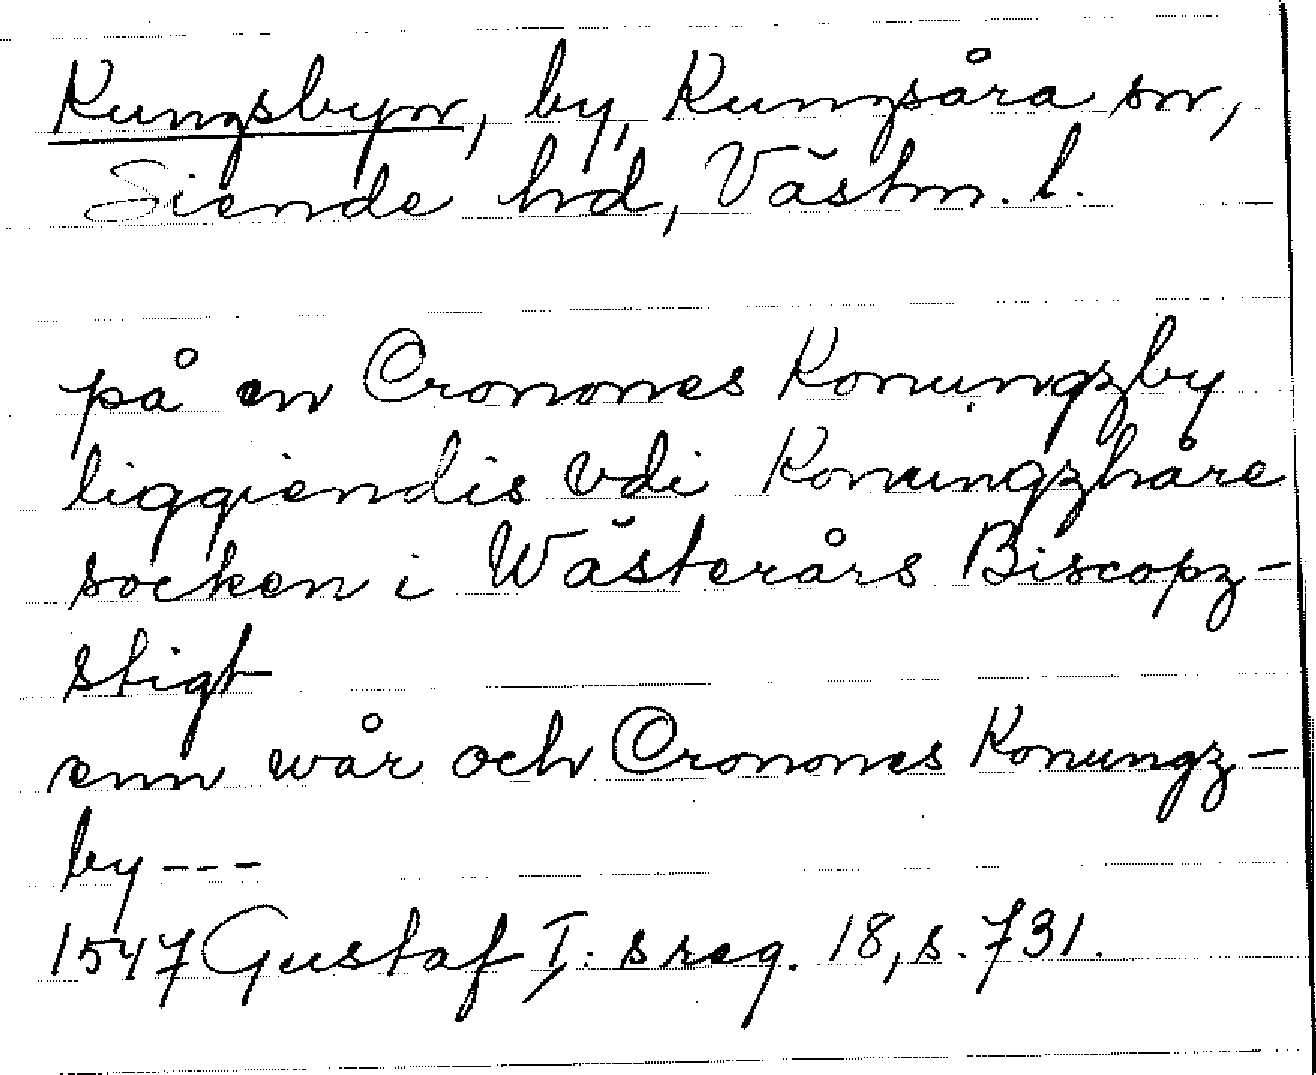 Kungsbyn, by, Kungsåra sn,
Siende hd, Västm. l.
på en Cronones Konungzby
liggiendis vdi Konungzhåre
socken i Wästerårs Biscopz-
stigt
enn wår och Cronones Konungz-
by---
1547 Gustaf I:s reg. 18, s. 731.